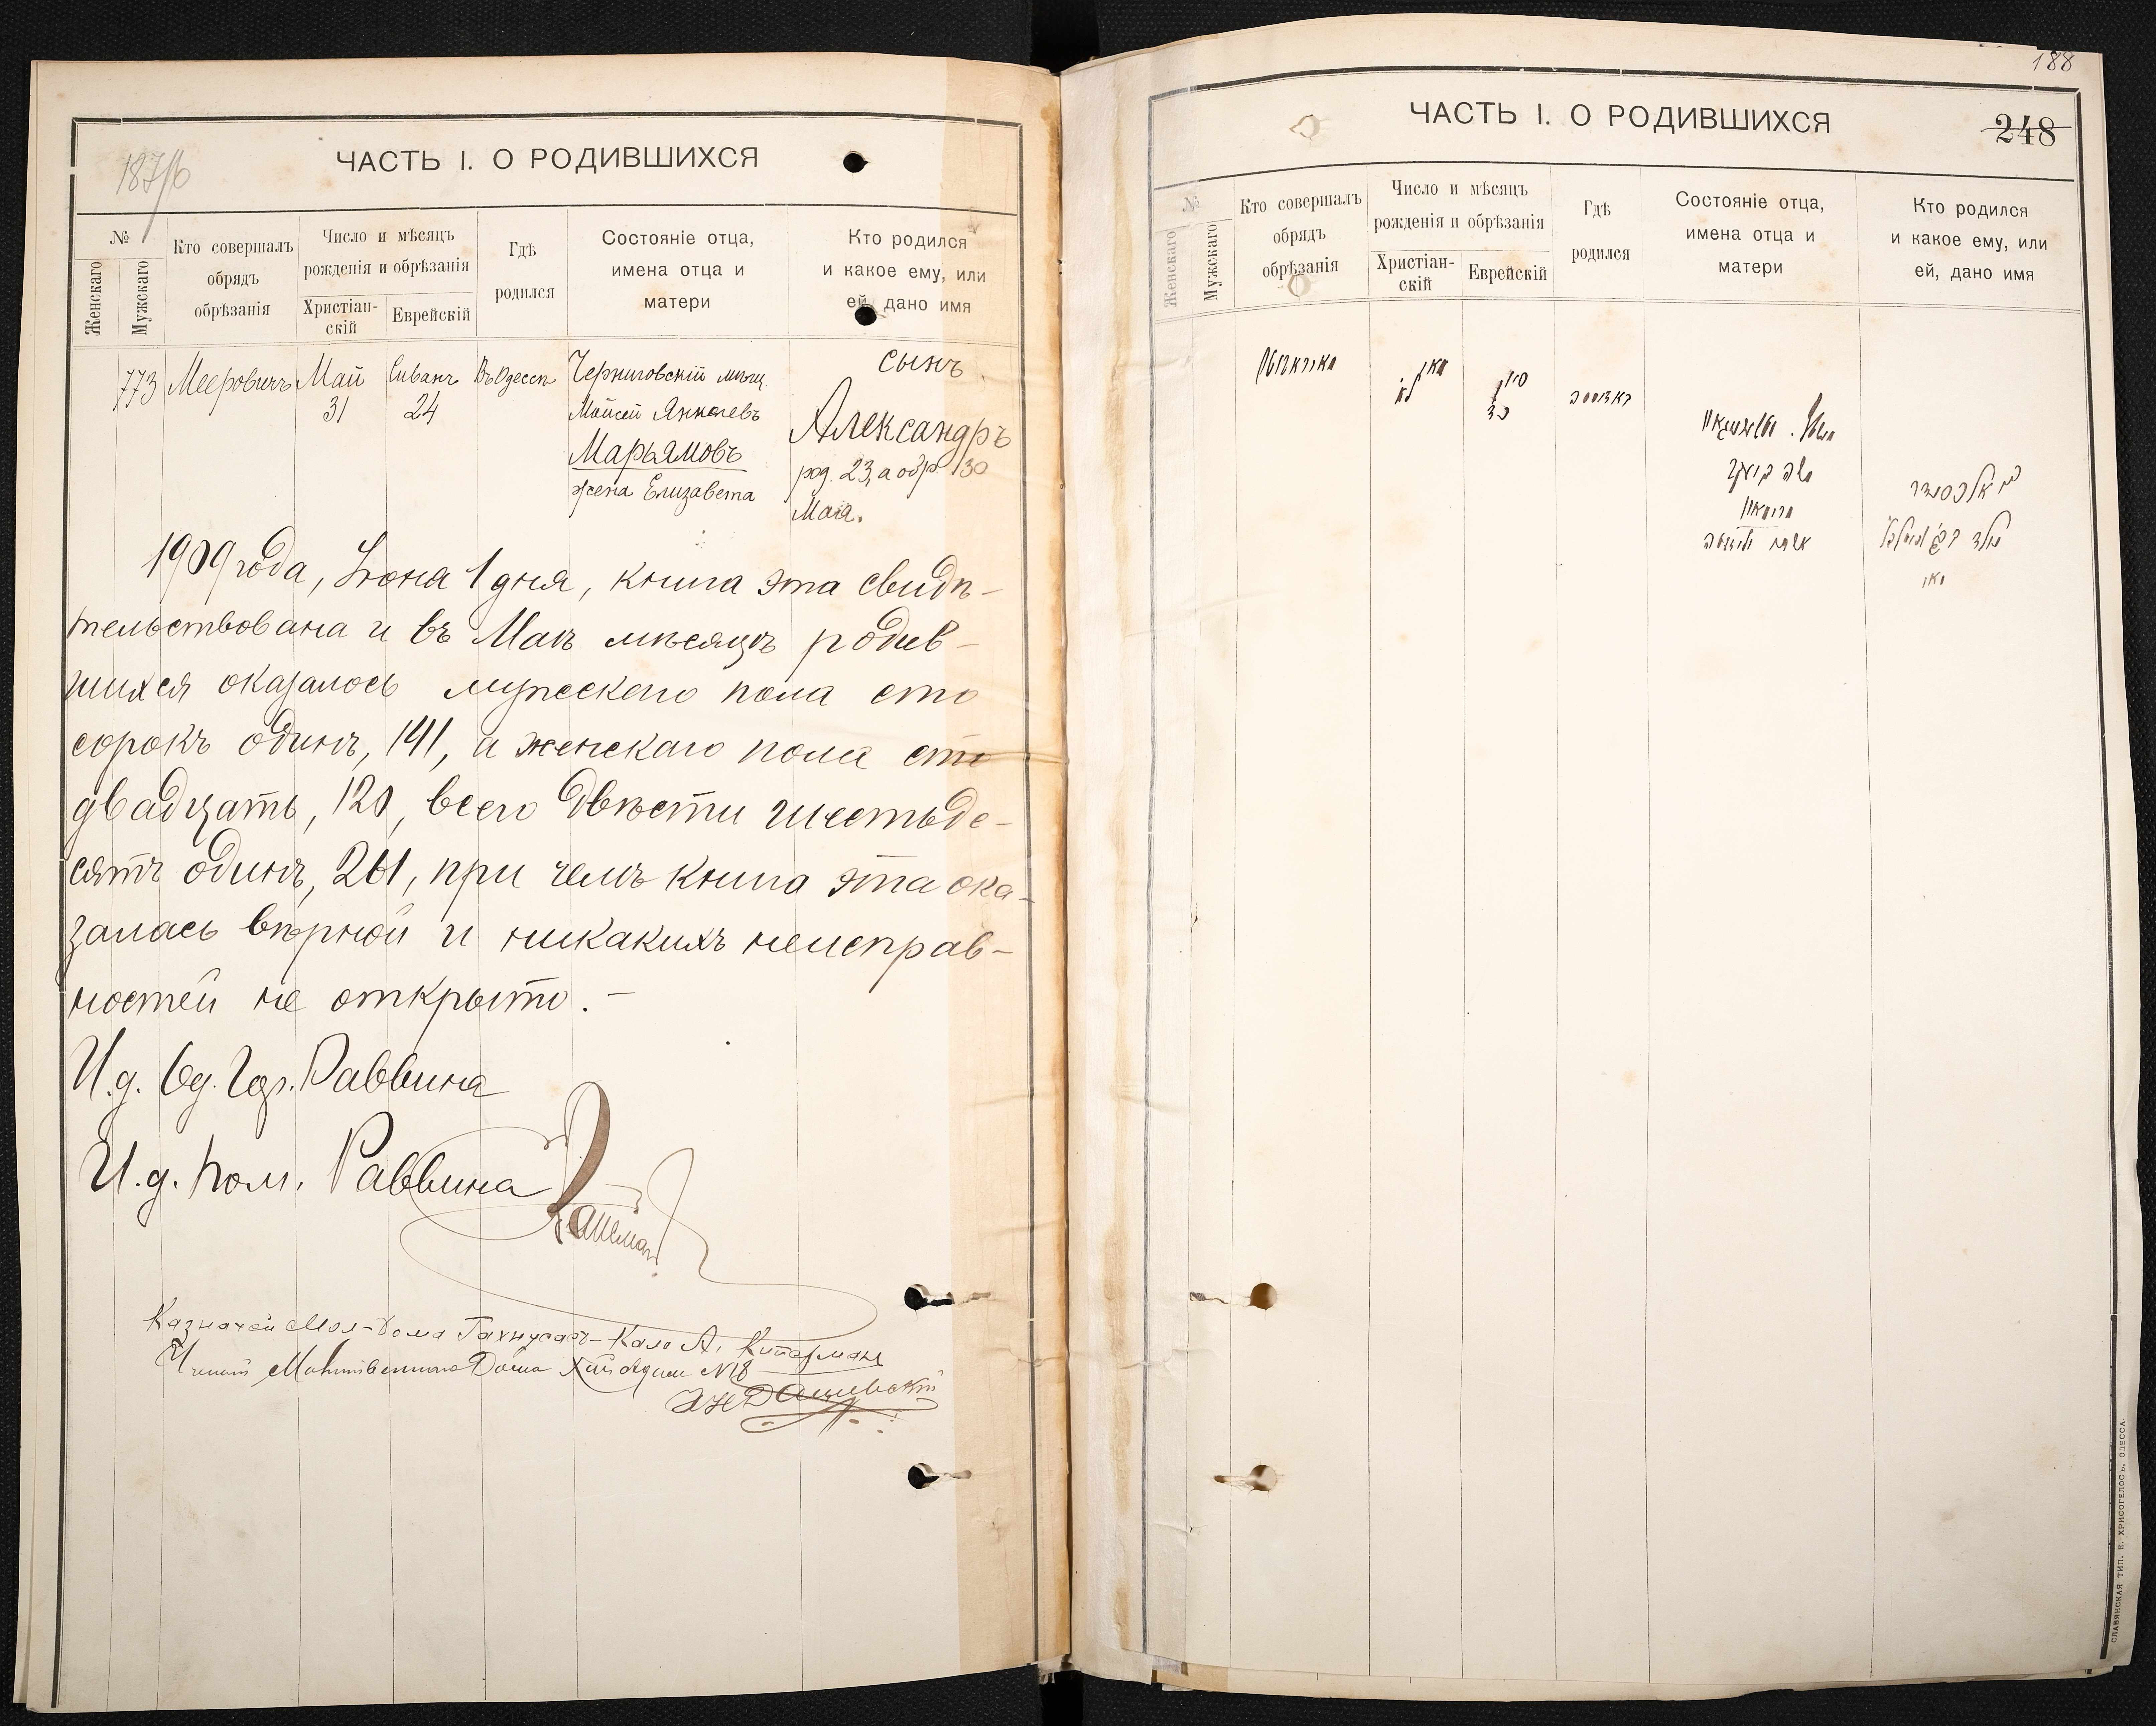 187/6
ЧАСТЬ I. О РОДИВШИХСЯ
№
Женскаго
Мужскаго
Кто совершалъ
обрядъ
обрѣзанія
Число и мѣсяцъ
рожденія и обрѣзанія
Христіан-
скій
Еврейскій
Гдѣ
родился
Состояніе отца,
имена отца и
матери
Кто родился
и какое ему, или
ей, дано имя
773
Мееровичъ
Май
31
Сиванъ
24
Въ Одессѣ
Черниговскій мѣщ.
Мойсей Янкелевъ
Марьямовъ
жена Елизавета
сынъ
Александръ
род. 23, а обр. 30
Мая.
1909 года, Іюня 1 дня, книга эта свидѣ-
тельствована и въ Маѣ мѣсяцѣ родив-
шихся оказалось мужескаго пола сто
сорокъ одинъ, 141, а женскаго пола сто
двадцать, 120, всего двѣсти шестьде-
сятъ одинъ, 261, при чемъ книга эта ока-
залась вѣрной и никакихъ неисправ-
ностей не открыто.-
И.д. Од. Гор. Раввина
И.д. Пом. Раввина
Казначей Мол-Дома Гахнусас-Кало А.
Молитвеннаго Дома №18
188
ЧАСТЬ I. О РОДИВШИХСЯ
248
№
Женскаго
Мужскаго
Кто совершалъ
обрядъ
обрѣзанія
Число и мѣсяцъ
рожденія и обрѣзанія
Христіан-
скій
Еврейскій
Гдѣ
родился
Состояніе отца,
имена отца и
матери
Кто родился
и какое ему, или
ей, дано имя
מאי
לא
סיון
כד
באדעססה
משה
בן אלכסנדר
נולד
מאי
СЛАВЯНСКАЯ ТИП. Е. ХРИСОГЕЛОСЪ, ОДЕССА.